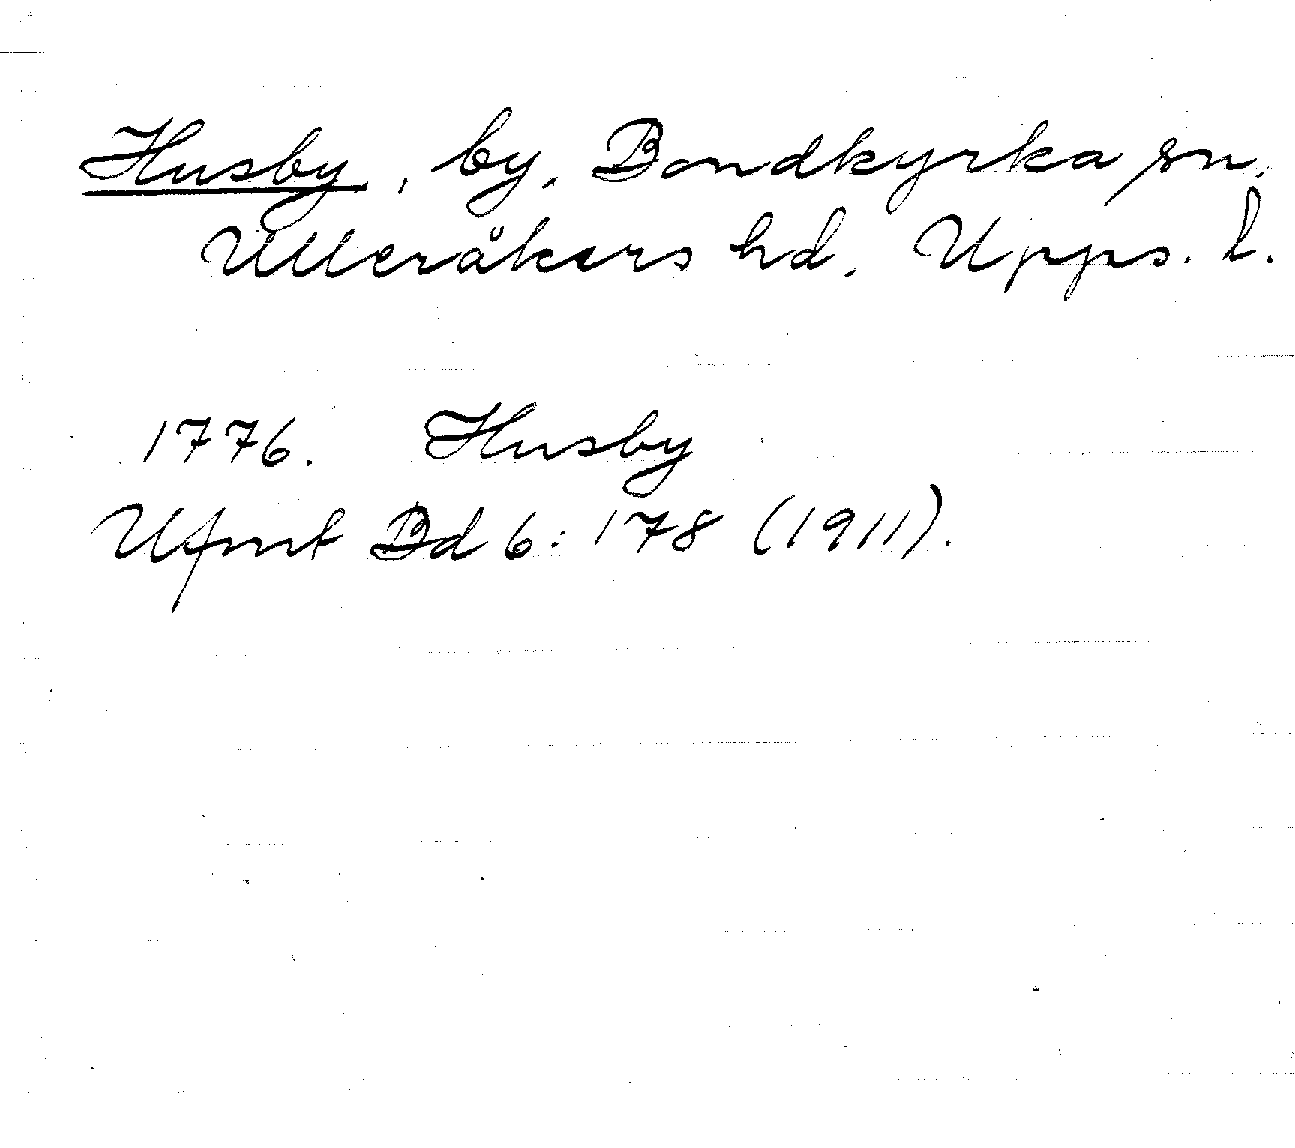 Husby, by, Bondkyrka sn.
Ulleråkers hd. Upps. l.
1776. Husby
Ufmt Bd 6: 178 (1911).